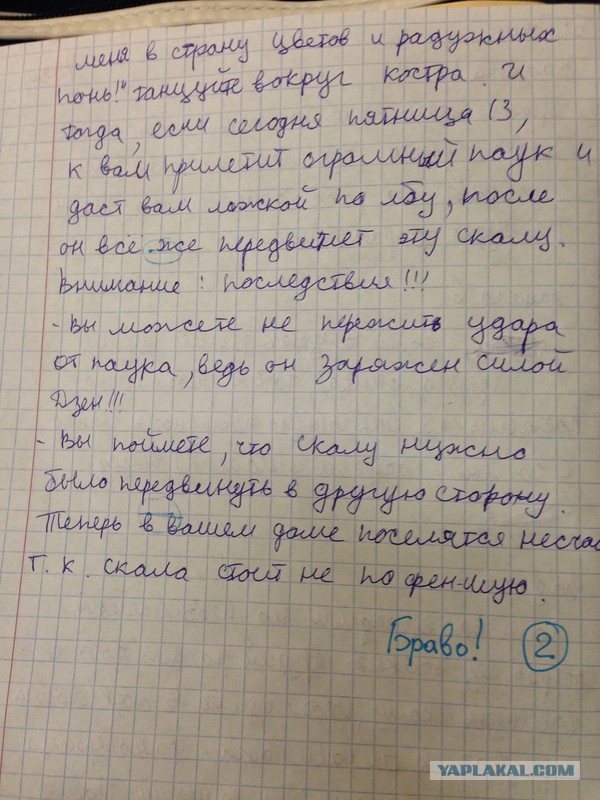 меня в страну цветов и радужных
понь!" танцуйте вокруг костра. И
тогда, если сегодня пятница 13,
к вам прилетит огромный паук и
даст вам ложкой по лбу, после
он всё же передвинет эту скалу.
Внимание: последствия!!!
- Вы можете не пережить удара
от паука, ведь он заряжен силой
Дзен!!!
- Вы поймете, что скалу нужно
было передвинуть в другую сторону.
Теперь в вашем доме поселятся несчас
Т.к. скала стоит не по фен-шую.
Браво! 2
YAPLAKAL.COM